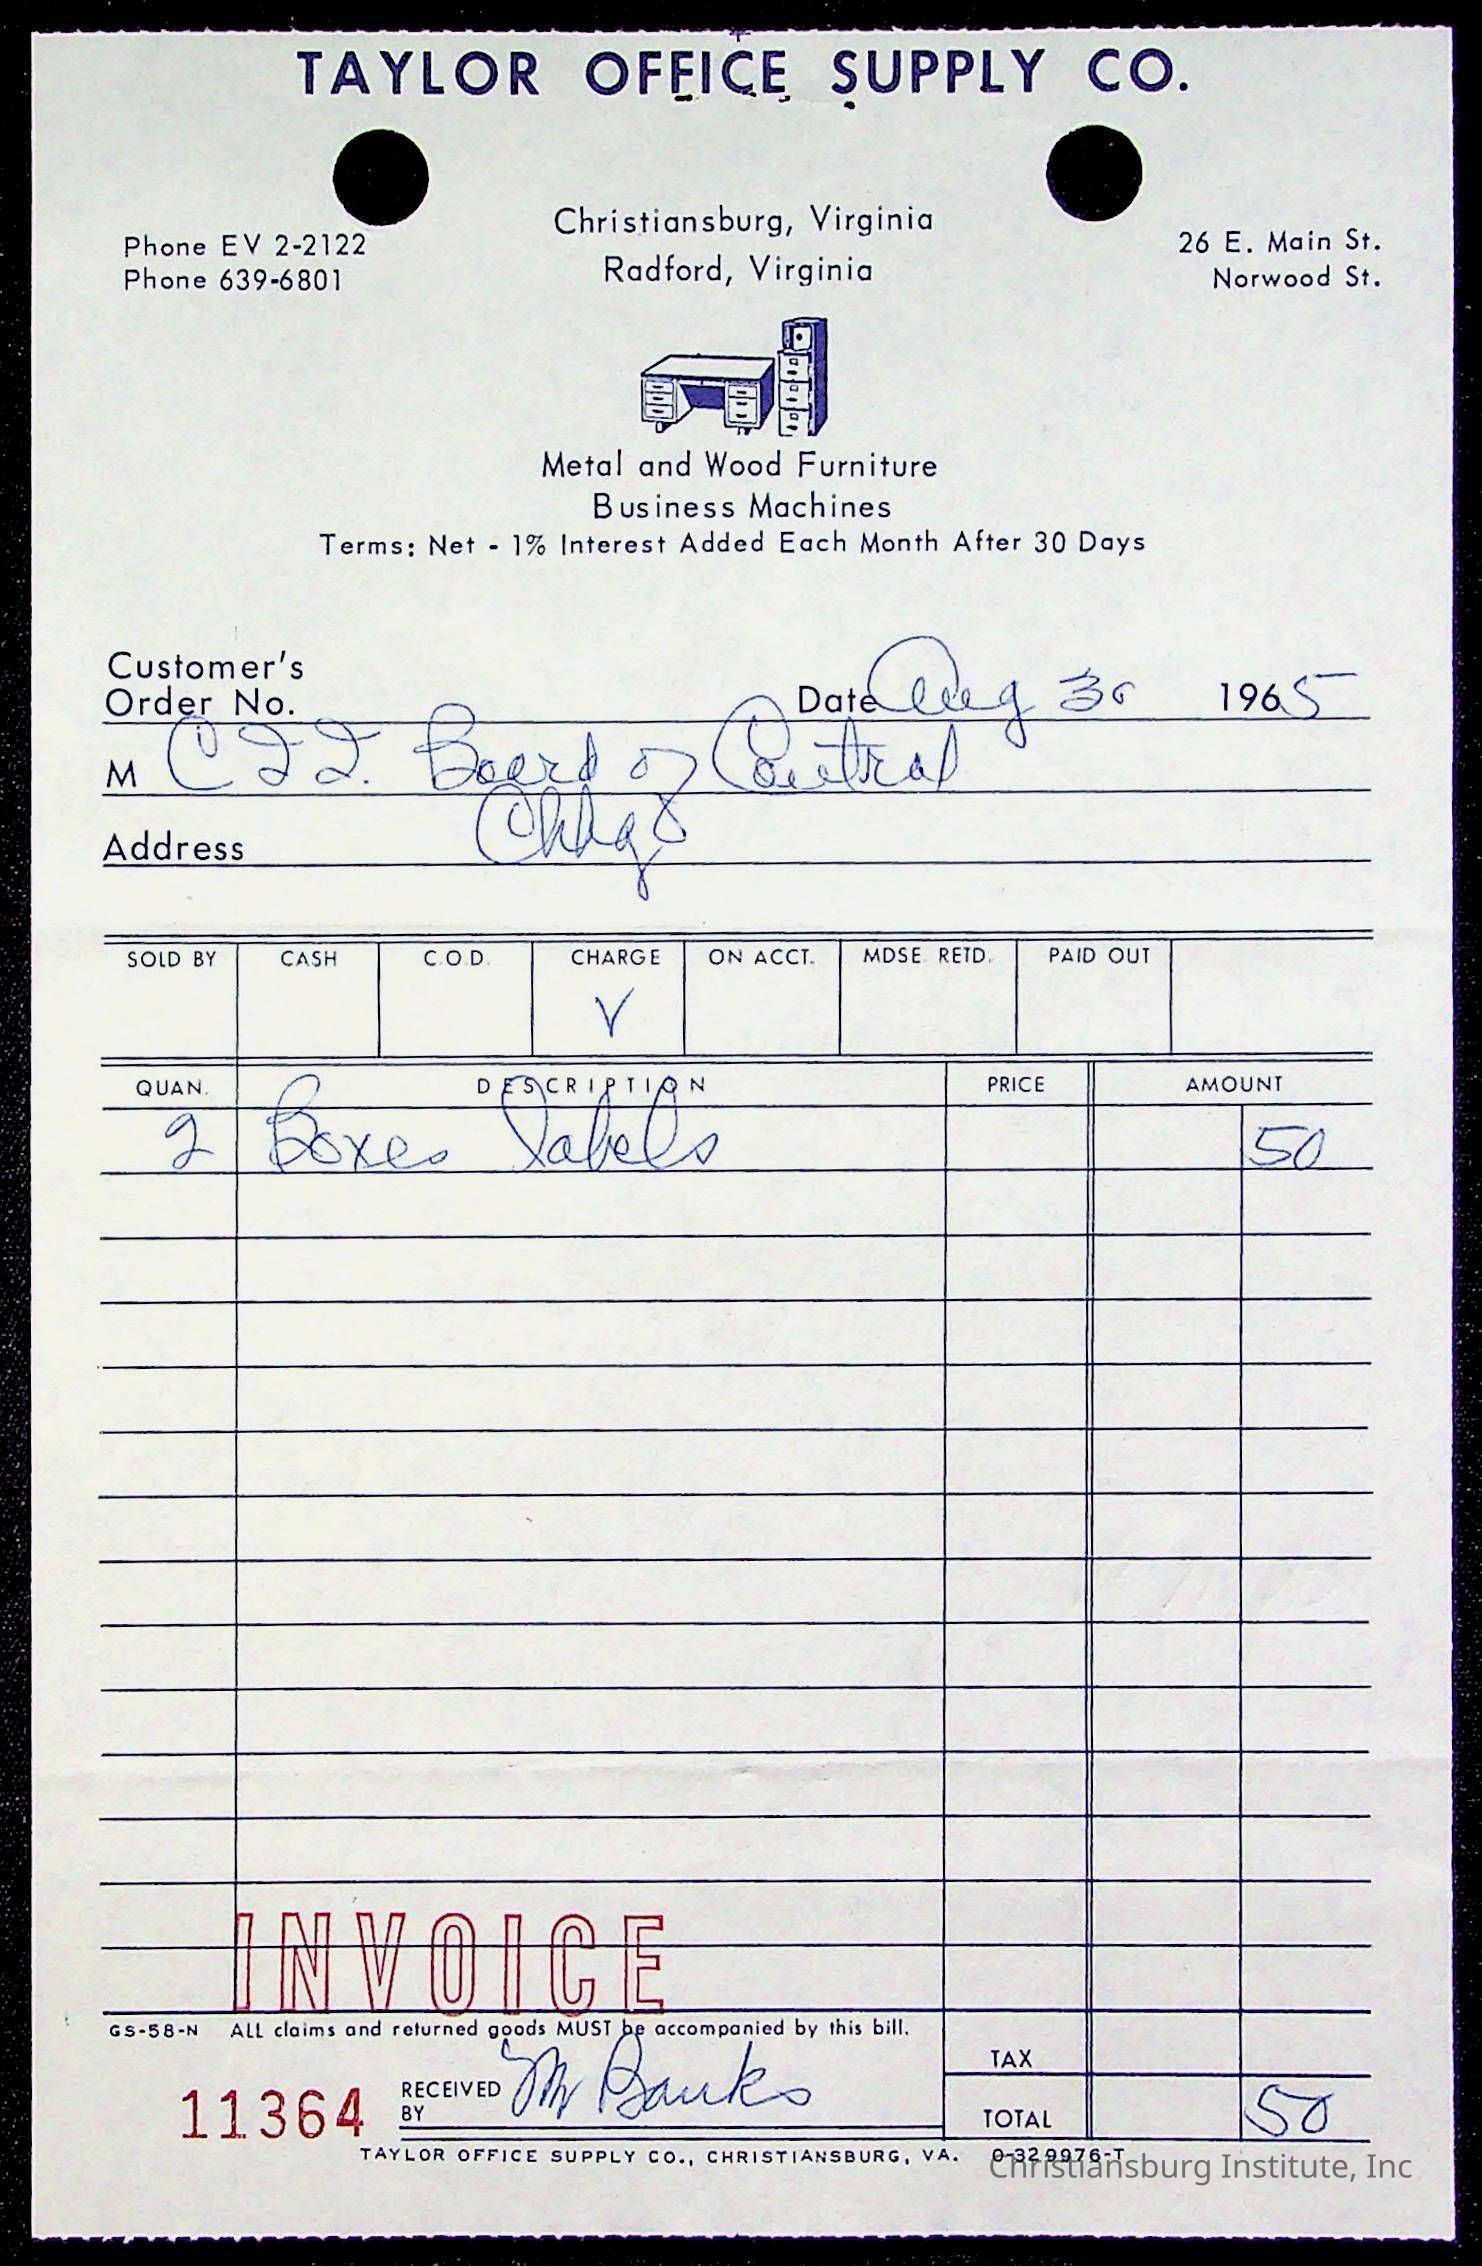 TAYLOR OFFICE SUPPLY CO.
Christiansburg, Virginia
Radford, Virginia
Phone EV 2-2122
Phone 639-6801
26 E. Main St.
Norwood St.
Metal and Wood Furniture
Business Machines
Terms: Net - 1% Interest Added Each Month After 30 Days
Customer's
Order No.
Date Aug 30 1965
M C I I. Board of Control
Address
SOLD BY CASH C.O.D. CHARGE ON ACCT. MDSE. RETD. PAID OUT
V
QUAN. DESCRIPTION PRICE AMOUNT
2 Boxes labels 50
INVOICE
GS-58-N ALL claims and returned goods MUST be accompanied by this bill.
TAX
11364 RECEIVED BY Mr Banks
TOTAL 50
TAYLOR OFFICE SUPPLY CO., CHRISTIANSBURG, VA. 0-329976-T
Christiansburg Institute, Inc